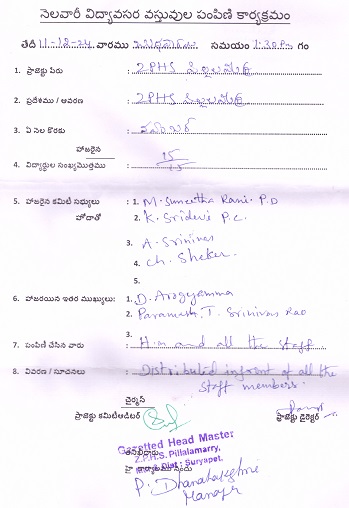 నెలవారీ విద్యావసర వస్తువుల పంపిణి కార్యక్రమం
తేదీ 11-12-24 వారము బుధవారము సమయం 1:30P.M గం
1. ప్రాజెక్టు పేరు : ZPHS పిల్లలమర్రి
2. ప్రదేశము / ఆవరణ : ZPHS పిల్లలమర్రి
3. ఏ నెల కొరకు : నవంబర్
హాజరైన
4. విద్యార్థుల సంఖ్య/మొత్తము : 15/15
5. హాజరైన కమిటీ సభ్యులు : 1. M. Suneetha Rani. P.D
హోదాతో 2. K. Sridevi P.C.
3. A. Srinivas
4. Ch. Sheker.
5.
6. హాజరయిన ఇతర ముఖ్యులు: 1. D. Arogyamma
2. Paramesh, T. Srinivas Rao
3.
7. పంపిణి చేసిన వారు : H.M and all the staff
8. వివరణ / సూచనలు : Distributed infront of all the
staff members.
చైర్మన్
ప్రాజెక్టు కమిటీ/ఆడిటర్ ప్రాజెక్టు డైరెక్టర్
Gazetted Head Master
Z.P.H.S. Pillalamarry,
& Dist: Suryapet.
P. Dhanalakshmi
Manager